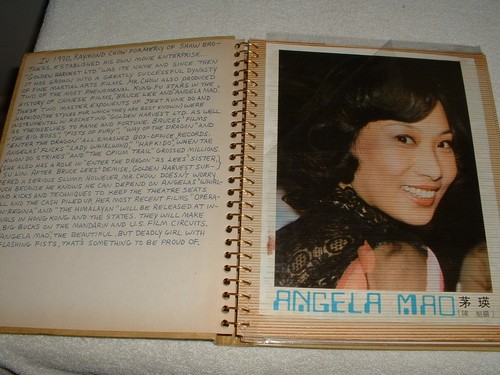 IN 1970, RAYMOND CHOW FORMERLY OF SHAW BRO-
THERS, ESTABLISHED HIS OWN MOVIE ENTERPRISE.
"GOLDEN HARVEST LTD." WAS ITS NAME AND SINCE THEN
IT HAS GROWN INTO A GREATLY SUCCESSFUL DYNASTY
OF FINE MARTIAL ARTS FILMS. MR. CHOW ALSO PRODUCED
TWO OF THE MOST PHENOMENAL KUNG FU STARS IN THE
HISTORY OF CHINESE FILMS, "BRUCE LEE" AND "ANGELA MAO".
THESE TWO MASTER EXPONENTS OF JEET KUNE DO AND
HAPKIDO (THE STYLES FOR WHICH THEY ARE BEST KNOWN) WERE
INSTRUMENTAL IN ROCKETING "GOLDEN HARVEST LTD. AS WELL
AS THEMSELVES TO FAME AND FORTUNE. BRUCE'S FILMS
"THE BIG BOSS," "FISTS OF FURY," "WAY OF THE DRAGON" AND
"ENTER THE DRAGON" ALL SMASHED BOX-OFFICE RECORDS.
ANGELA'S FLICKS "LADY WHIRLWIND," "HAPKIDO," WHEN TAE
KWON DO STRIKES" AND "THE OPIUM TRAIL" GROSSED MILLIONS
(SHE ALSO HAS A ROLE IN "ENTER THE DRAGON" AS LEE'S SISTER,
SU LIN. AFTER BRUCE LEE'S DEMISE, GOLDEN HARVEST SUF-
FERED A SERIOUS SLUMP. HOWEVER, MR. CHOW DOESN'T WORRY
BECAUSE HE KNOWS HE CAN DEPEND ON ANGELA'S "WHIRL-
WIND KICKS AND TECHNIQUES TO KEEP THE THEATRE SEATS
AND THE CASH PILED UP. HER MOST RECENT FILMS "OPERA-
REGINA," AND "THE HIMALAYAN" WILL BE RELEASED AT IN-
IN HONG KONG AND THE STATES. THEY WILL MAKE
BIG BUCKS ON THE MANDARIN AND U.S. FILM CIRCUITS.
ANGELA MAO, THE BEAUTIFUL BUT DEADLY GIRL WITH
FLASHING FISTS, THAT'S SOMETHING TO BE PROUD OF.
ANGELA MAO 茅瑛